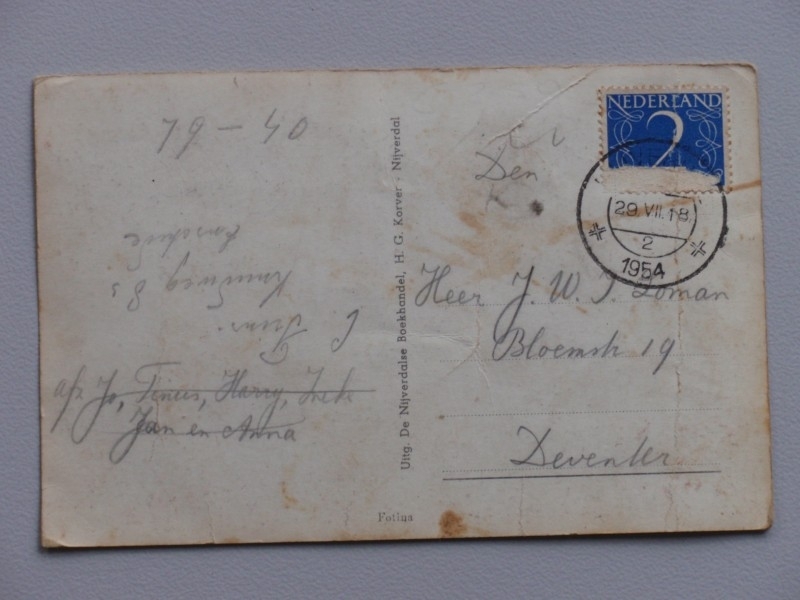 79-40
afz Jo, Tinus, Harry, Ineke
Jan en Anna
Uitg. De Nijverdalse Boekhandel, H. G. Korver - Nijverdal
Fotina
NEDERLAND
2
29.VII.18
2
1954
Den
Heer J. W. J. Loman
Bloemstr 19
Deventer